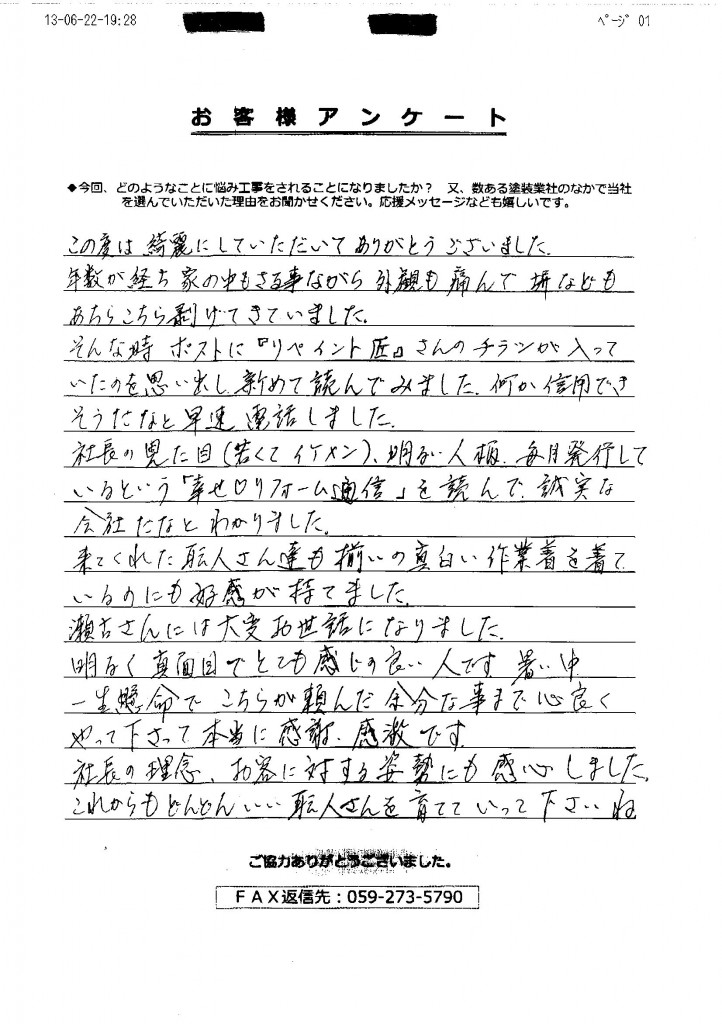 13-06-22-19:28
ページ 01
お客様アンケート
◆今回、どのようなことに悩み工事をされることになりましたか？ 又、数ある塗装業社のなかで当社
を選んでいただいた理由をお聞かせください。応援メッセージなども嬉しいです。
この度は綺麗にしていただいてありがとうございました。
年数が経ち家の中もさる事ながら外観も痛んで塀なども
あちらこちら剥げてきていました。
そんな時ポストに『リペイント匠』さんのチラシが入って
いたのを思い出し新めて読んでみました。何か信用でき
そうだなと早速電話しました。
社長の見た目(若くてイケメン)、明るい人柄、毎月発行して
いるという「幸せリフォーム通信」を読んで、誠実な
会社だなとわかりました。
来てくれた職人さん達も揃いの真白い作業着を着て
いるのにも好感が持てました。
瀬古さんには大変お世話になりました。
明るく真面目でとても感じの良い人です。暑い中
一生懸命でこちらが頼んだ余分な事まで心良く
やって下さって本当に感謝、感激です。
社長の理念、お客に対する姿勢にも感心しました。
これからもどんどんいい職人さんを育てていって下さいね
ご協力ありがとうございました。
ＦＡＸ返信先：059-273-5790